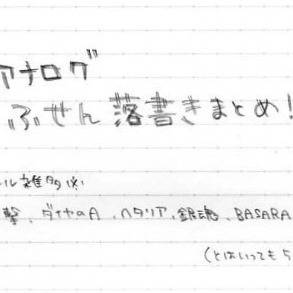 アナログ
ふせん落書きまとめ!
ル雑多
撃、ダイヤのA、ヘタリア、銀魂、BASARA
(とはいっても5